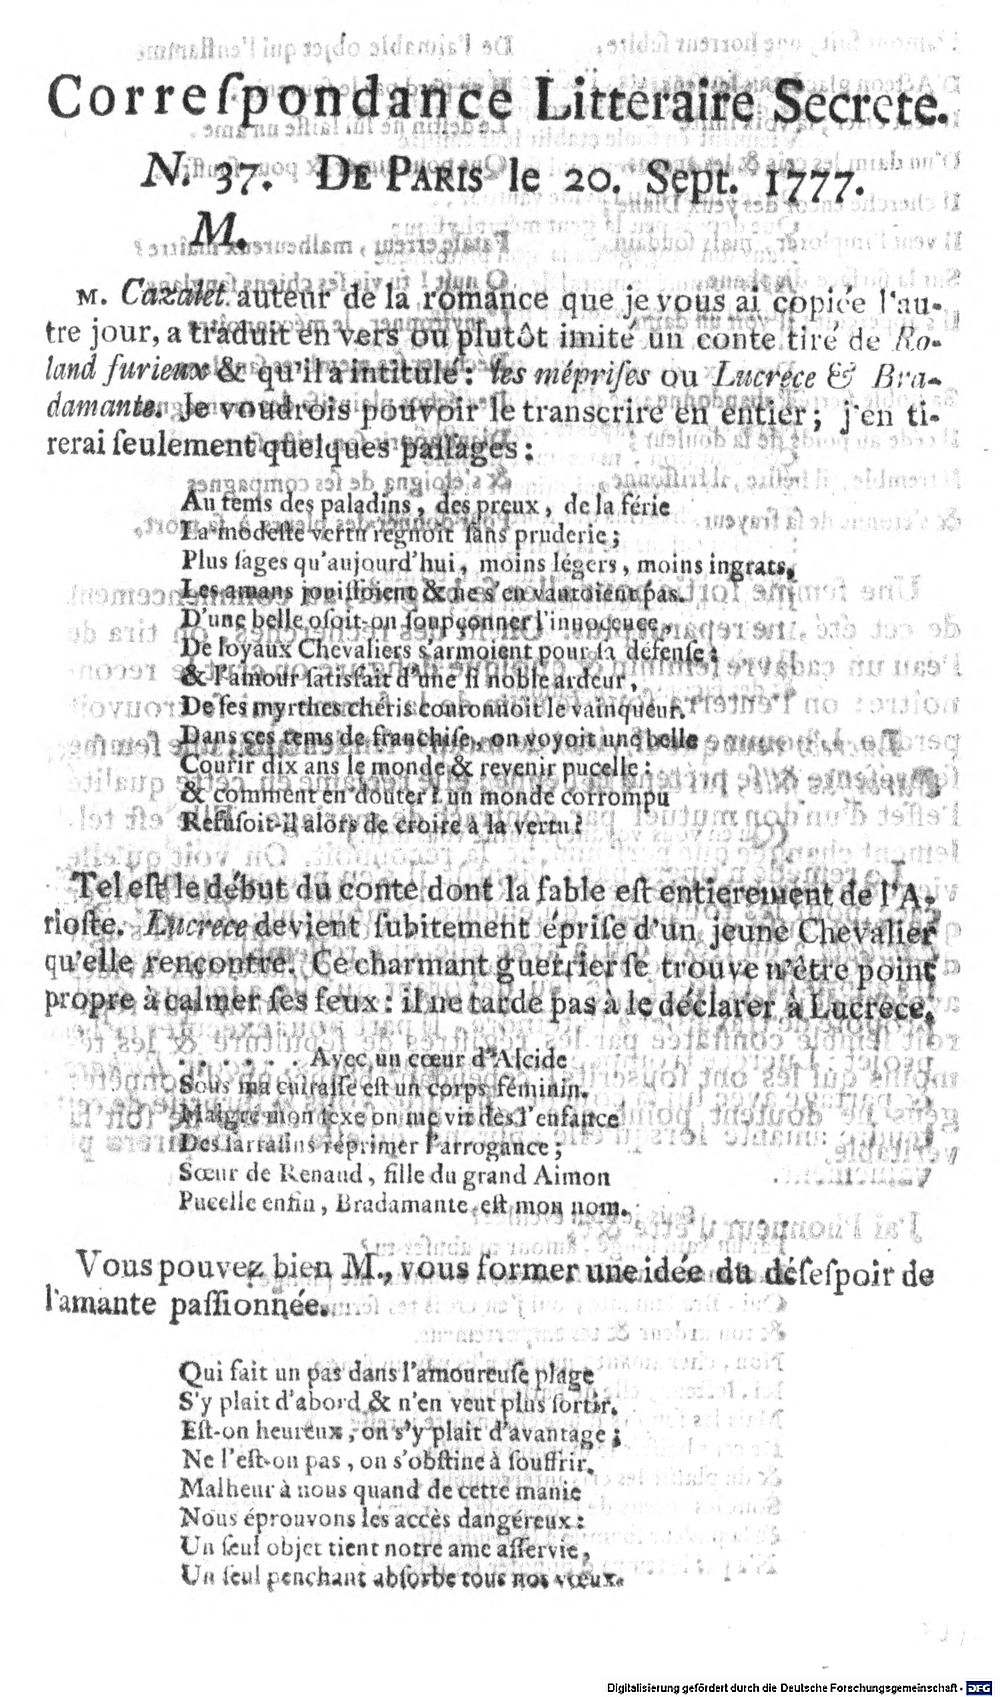 Correſpondance Litteraire Secrete.
N. 37. DE PARIS le 20. Sept. 1777.
M.
M. Cazalet auteur de la romance que je vous ai copiée l'au-
tre jour, a traduit en vers ou plutôt imité un conte tiré de Ro-
land furieux & qu'il a intitulé: les mépriſes ou Lucrece & Bra-
damante. Je voudrois pouvoir le transcrire en entier; j'en ti-
rerai ſeulement quelques paſſages:
Au tems des paladins, des preux, de la férie
La modeſte vertu régnoit ſans pruderie;
Plus ſages qu'aujourd'hui, moins légers, moins ingrats,
Les amans jouiſſoient & ne s'en vantoient pas.
D'une belle oſoit-on ſoupçonner l'innocence,
De loyaux Chevaliers s'armoient pour ſa défenſe;
& l'amour ſatisfait d'une ſi noble ardeur,
De ſes myrthes chéris couronnoit le vainqueur.
Dans ces tems de franchiſe, on voyoit une belle
Courir dix ans le monde & revenir pucelle:
& comment en douter? un monde corrompu
Refuſoit-il alors de croire à la vertu?
Tel eſt le début du conte dont la fable eſt entierement de l'A-
rioſte. Lucrece devient ſubitement épriſe d'un jeune Chevalier
qu'elle rencontre. Ce charmant guerrier ſe trouve n'être point
propre à calmer ſes feux: il ne tarde pas à le déclarer à Lucrece.
. . . . . . Avec un cœur d'Alcide
Sous ma cuiraſſe eſt un corps féminin.
Malgré mon ſexe on me vit dès l'enfance
Des ſarraſins réprimer l'arrogance;
Sœur de Renaud, fille du grand Aimon
Pucelle enfin, Bradamante eſt mon nom.
Vous pouvez bien M., vous former une idée du déſeſpoir de
l'amante paſſionnée.
Qui fait un pas dans l'amoureuſe plage
S'y plait d'abord & n'en veut plus ſortir.
Eſt-on heureux, on s'y plait d'avantage;
Ne l'eſt-on pas, on s'obſtine à ſouffrir.
Malheur à nous quand de cette manie
Nous éprouvons les accès dangéreux:
Un ſeul objet tient notre ame aſſervie,
Un ſeul penchant abſorbe tous nos vœux.
Digitalisierung gefördert durch die Deutsche Forschungsgemeinschaft - DFG